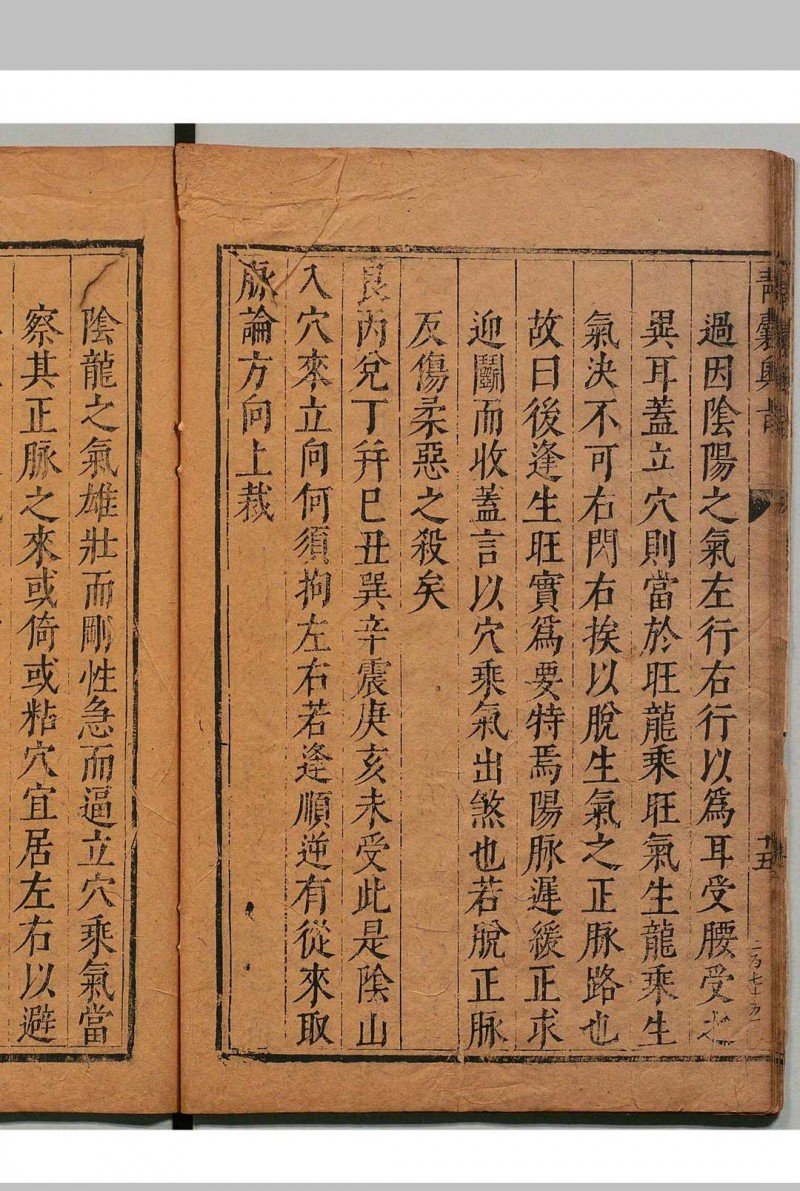 過因陰陽之氣左行右行以爲耳受腰受之
異耳蓋立穴則當於旺龍乘旺氣生龍乘生
氣決不可右閃右挨以脫生氣之正脉路也
故曰後逢生旺實爲要特焉陽脉遲緩正求
迎鬭而收蓋言以穴乘氣出煞也若脫正脉
反傷柔惡之殺矣
艮丙兌丁并巳丑巽辛震庚亥未受此是陰山
入穴來立向何須拘左右若逢順逆有從來取
脉論方向上裁
陰龍之氣雄壯而剛性急而逼立穴乘氣當
察其正脉之來或倚或粘穴宜居左右以避